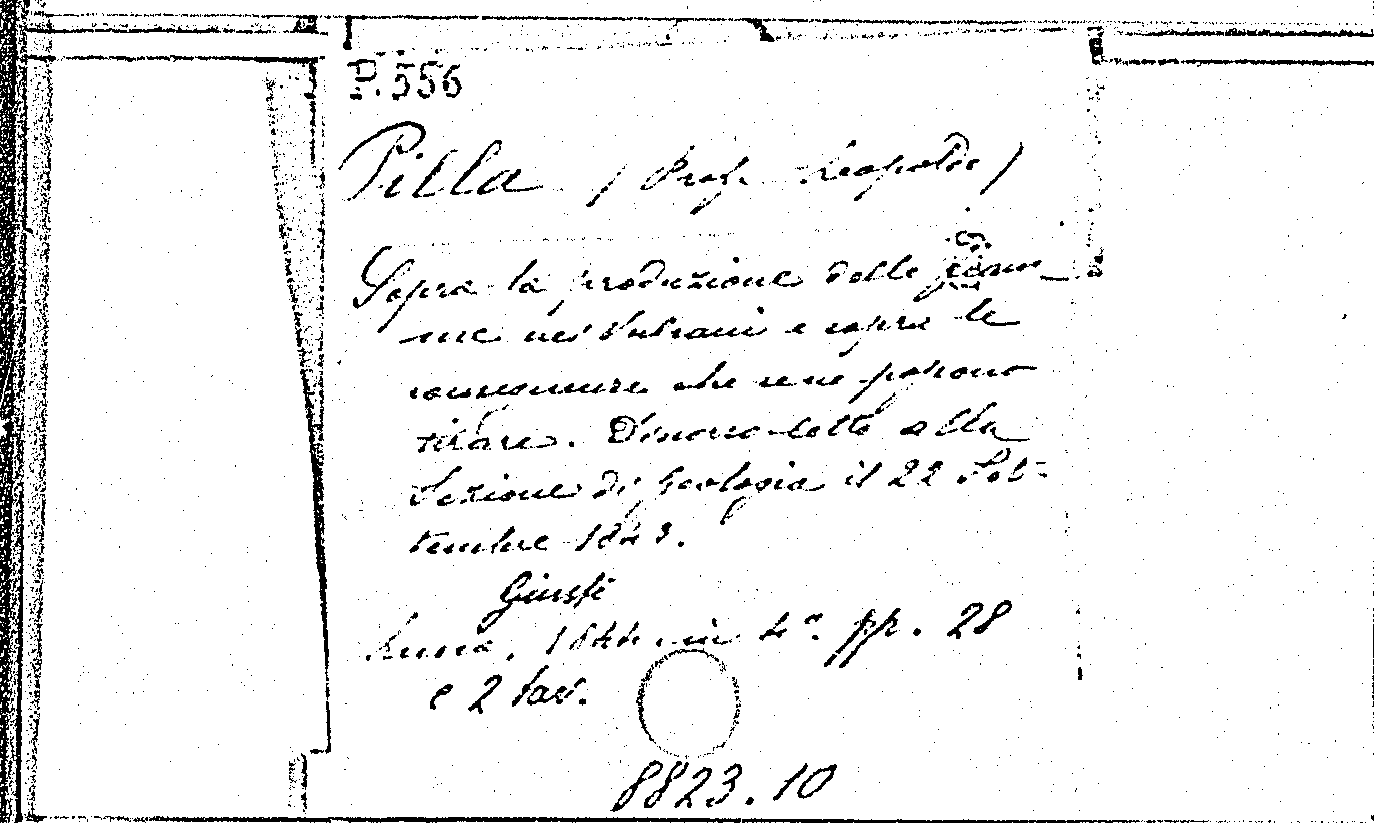 P. 556
Pilla (Prof. Leopoldo)
Sopra la produzione delle fiam-
me nei Vulcani e sopra le
conseguenze che se ne possono
tirare. Discorso letto alla
Sezione di Geologia il 22 Set-
tembre 1843.
Giusti
Lucca, 1844. in 4°. pp. 28
e 2 tav.
8823.10